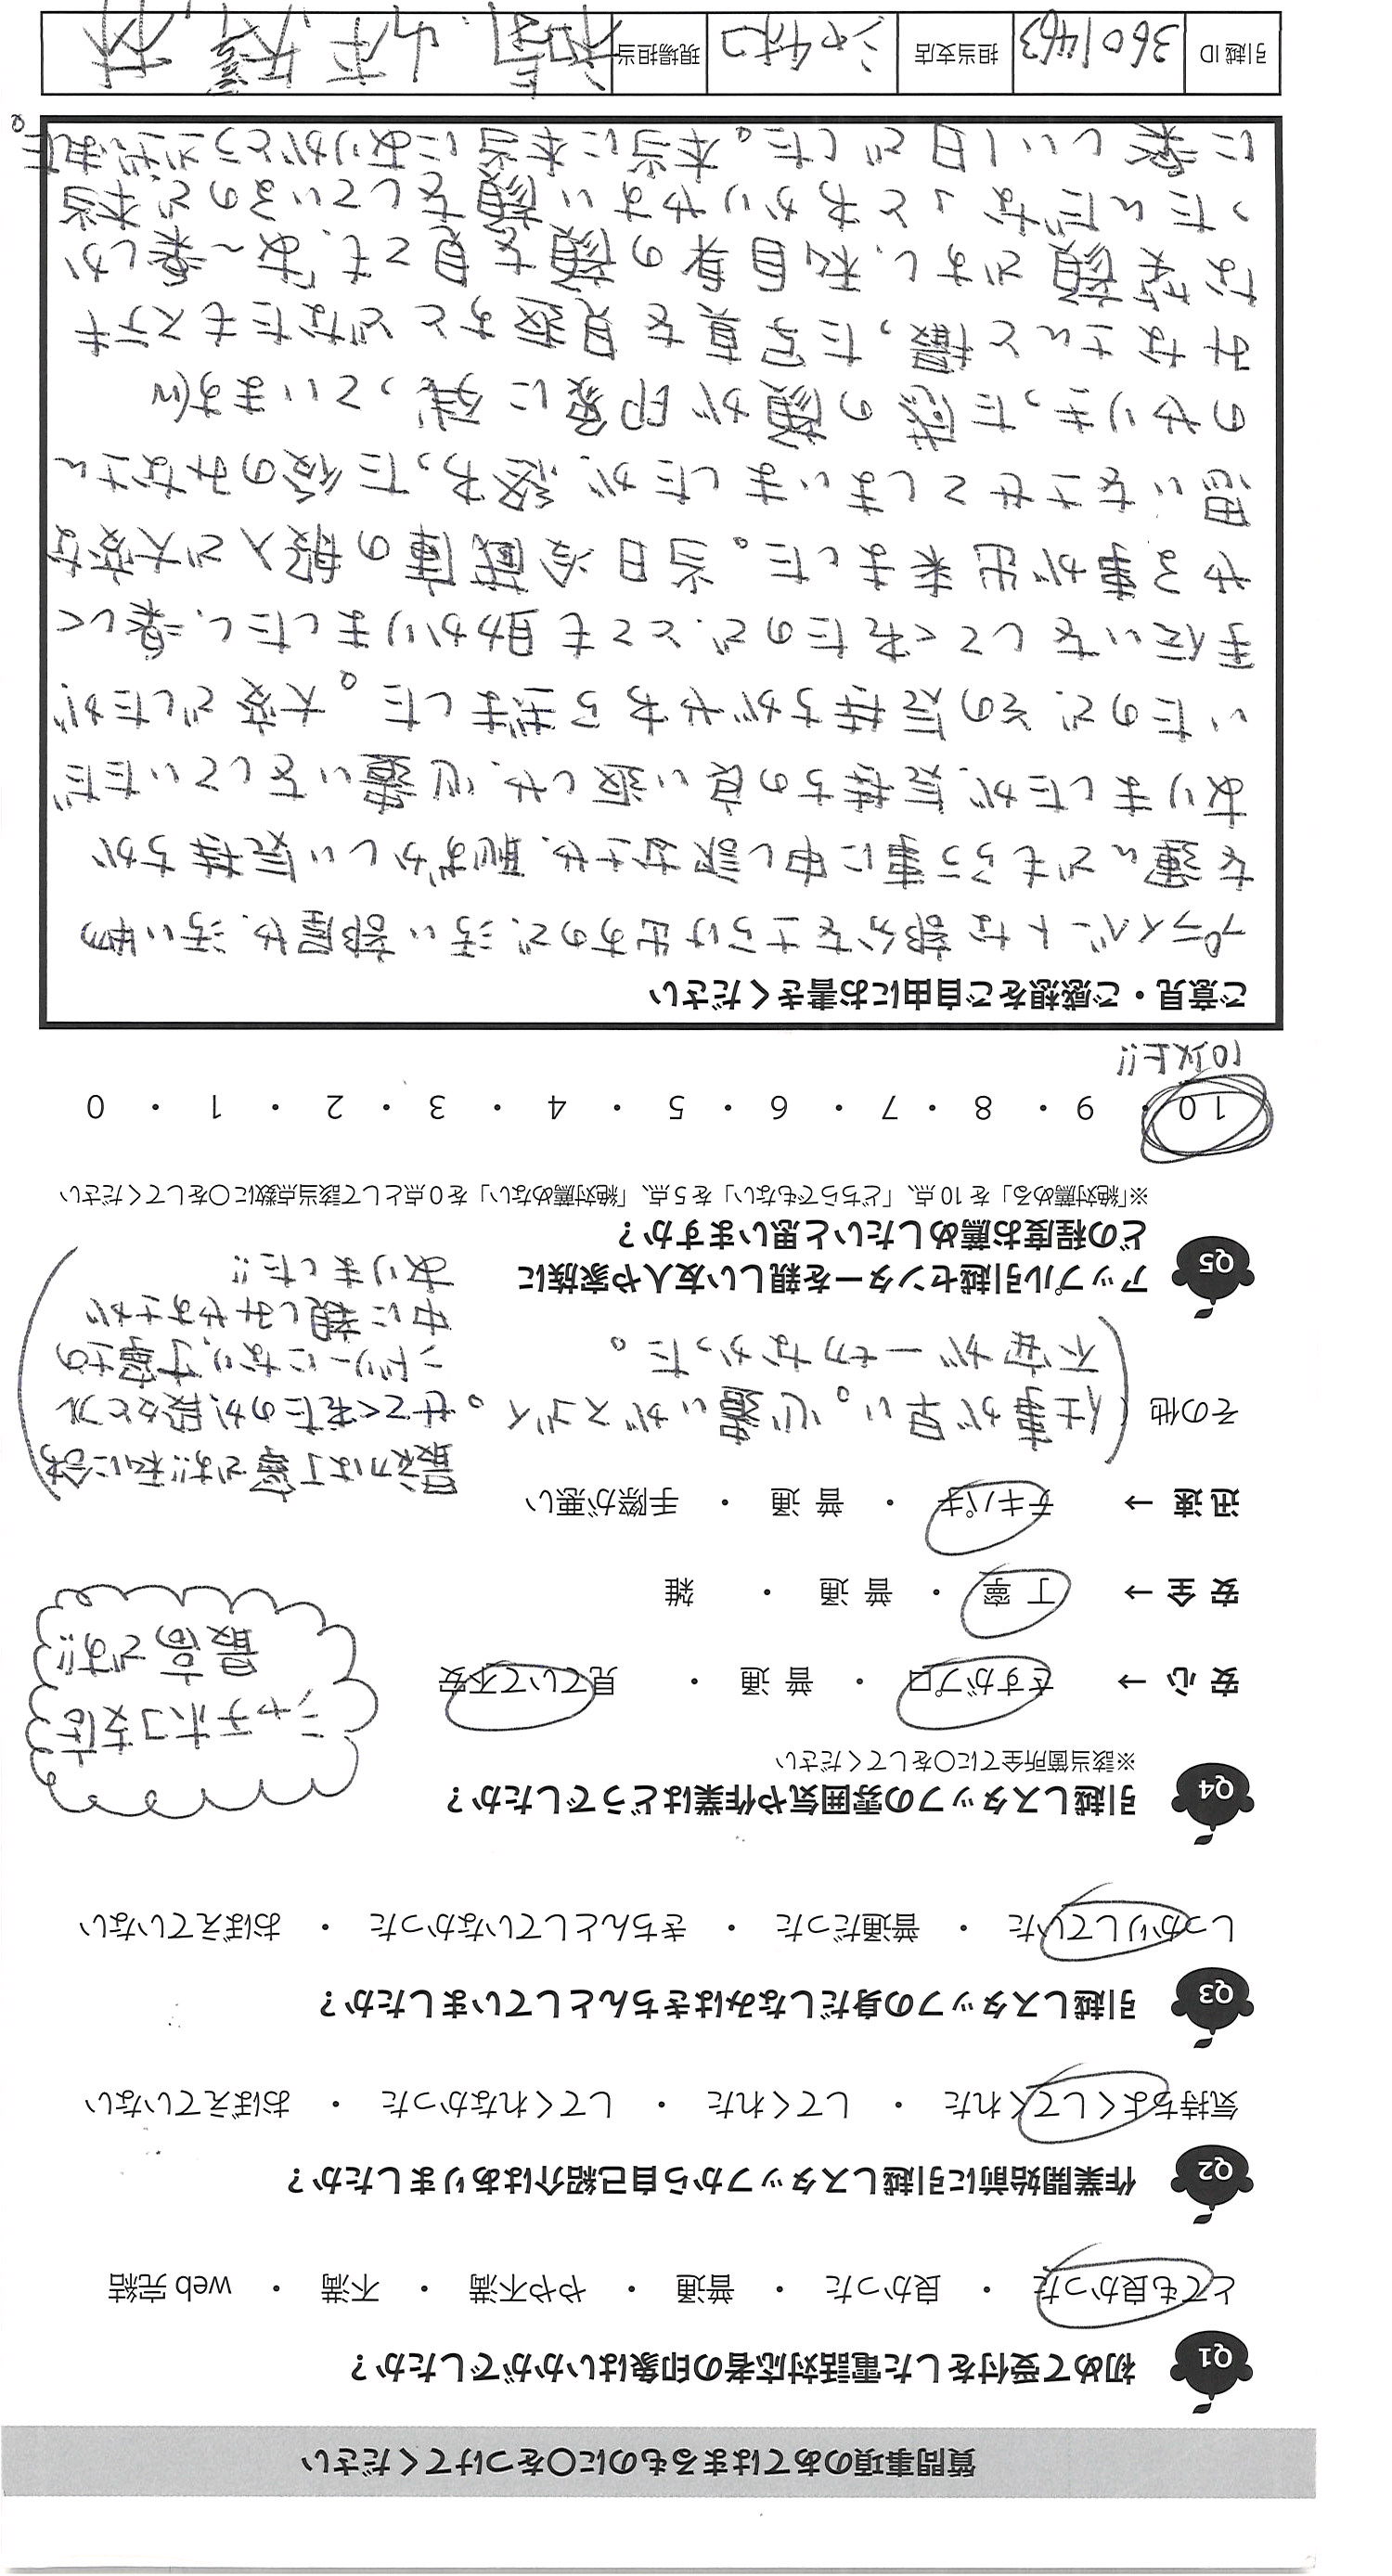 質問事項のあてはまるものに〇をつけてください
Q1 初めて受付をした電話対応者の印象はいかがでしたか？
とても良かった ・ 良かった ・ 普通 ・ やや不満 ・ 不満 ・ web 完結
Q2 作業開始前に引越しスタッフから自己紹介はありましたか？
気持ちよくしてくれた ・ してくれた ・ してくれなかった ・ おぼえていない
Q3 引越しスタッフの身だしなみはきちんとしていましたか？
しっかりしていた ・ 普通だった ・ きちんとしていなかった ・ おぼえていない
Q4 引越しスタッフの雰囲気や作業はどうでしたか？
※該当箇所全てに〇をしてください
安 心 → さすがプロ ・ 普 通 ・ 見ていて不安
安 全 → 丁 寧 ・ 普 通 ・ 雑
迅 速 → テキパキ ・ 普 通 ・ 手際が悪い
シャチホコ支店
最高です!!
その他
仕事が早い。心遣いがスゴイ。
不安が一切なかった。
最初は丁寧です!!私に合わ
せてくれたのか、段々とフレ
ンドリーになり、丁寧さの
中に親しみやすさが
ありました!!
Q5 アップル引越センターを親しい友人や家族に
どの程度お薦めしたいと思いますか？
※「絶対薦める」を 10 点、「どちらでもない」を 5 点、「絶対薦めない」を 0 点として該当点数に〇をしてください
10 ・ 9 ・ 8 ・ 7 ・ 6 ・ 5 ・ 4 ・ 3 ・ 2 ・ 1 ・ 0
10以上!!
ご意見・ご感想をご自由にお書きください
プライベートな部分をさらけ出すので、汚い部屋や、汚い物
を運んでもらう事に申し訳なさや、恥ずかしい気持ちが
ありましたが、気持ちの良い返しや、心遣いをしていただ
いたので、その気持ちがやわらぎました。大変でしたが、
手伝いをしてくれたので、とても助かりましたし、楽しく
やる事が出来ました。当日冷蔵庫の搬入で大変な
思いをさせてしまいましたが、終わった後のみなさん
のやりきった感の顔が印象に残っています(笑)
みなさんと撮った写真を見返すとどなたもステキ
な笑顔ですし、私自身の顔を見ても、「あ〜楽しか
ったんだな」とわかりやすい顔をしているので、本当
に楽しい1日でした。本当に本当にありがとうございました。
引越 ID 3601463 担当支店 シャチホコ 現場担当